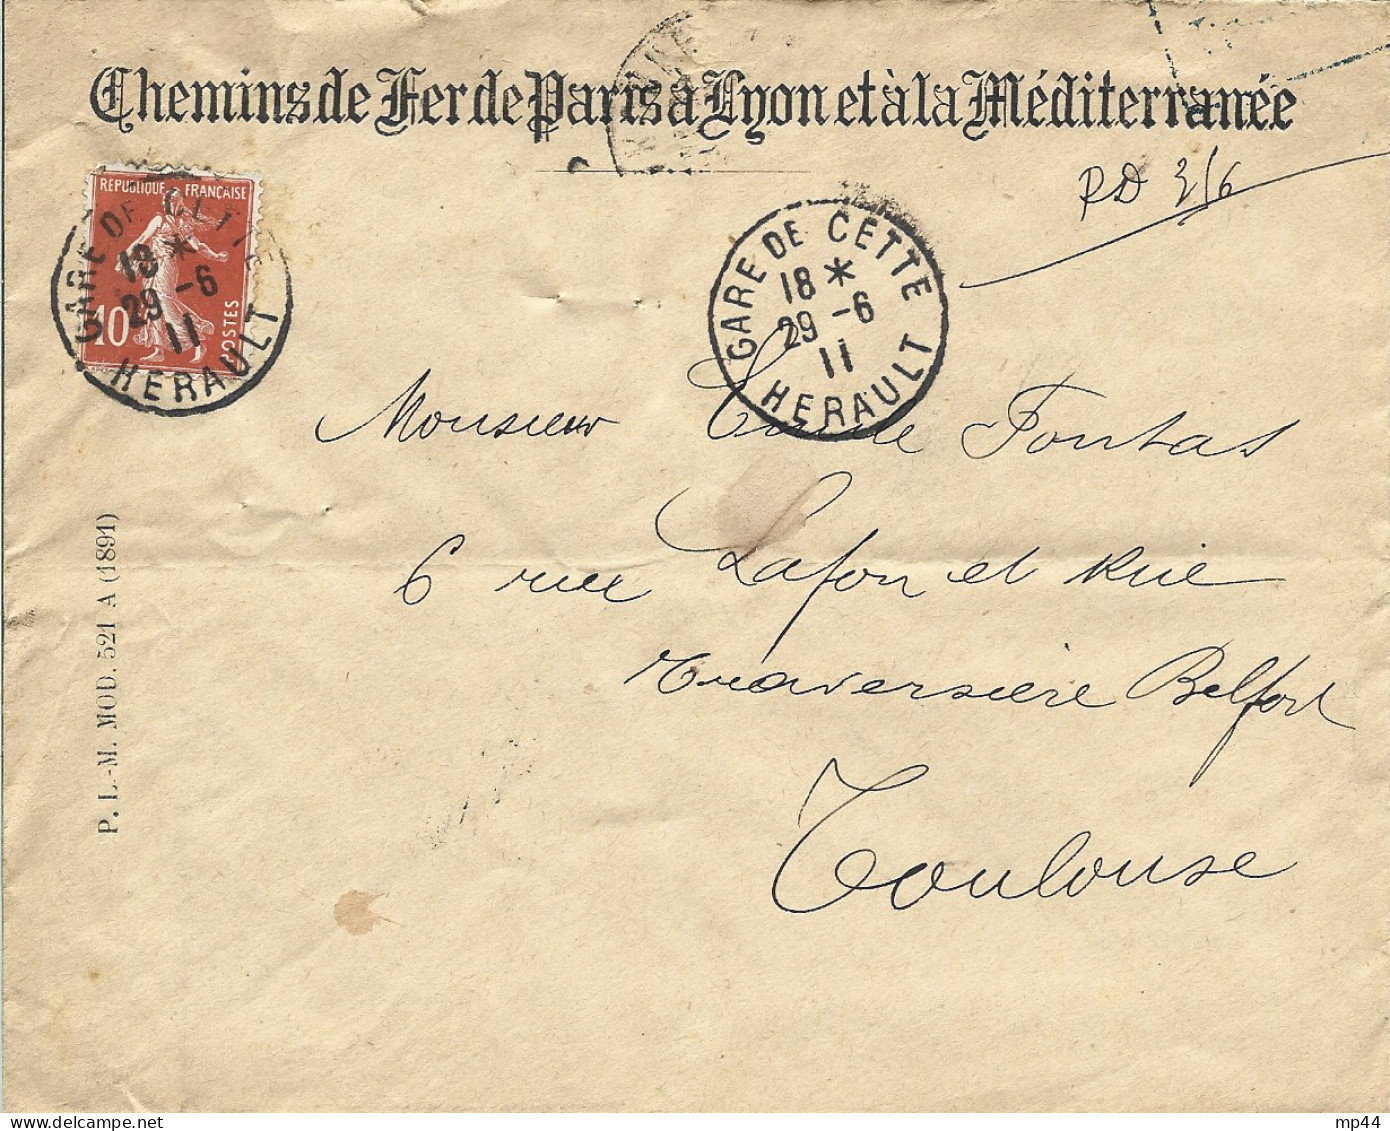 Chemins de Fer de Paris à Lyon et à la Méditerranée
RÉPUBLIQUE FRANÇAISE
10
POSTES
GARE DE CETTE
18 *
29 -6
11
HERAULT
GARE DE CETTE
18 *
29 -6
11
HERAULT
Monsieur Fontas
6 rue Lafon et Rue
Traversière Belfort
Toulouse
P. L.-M. MOD. 521 A (1891)
mp44